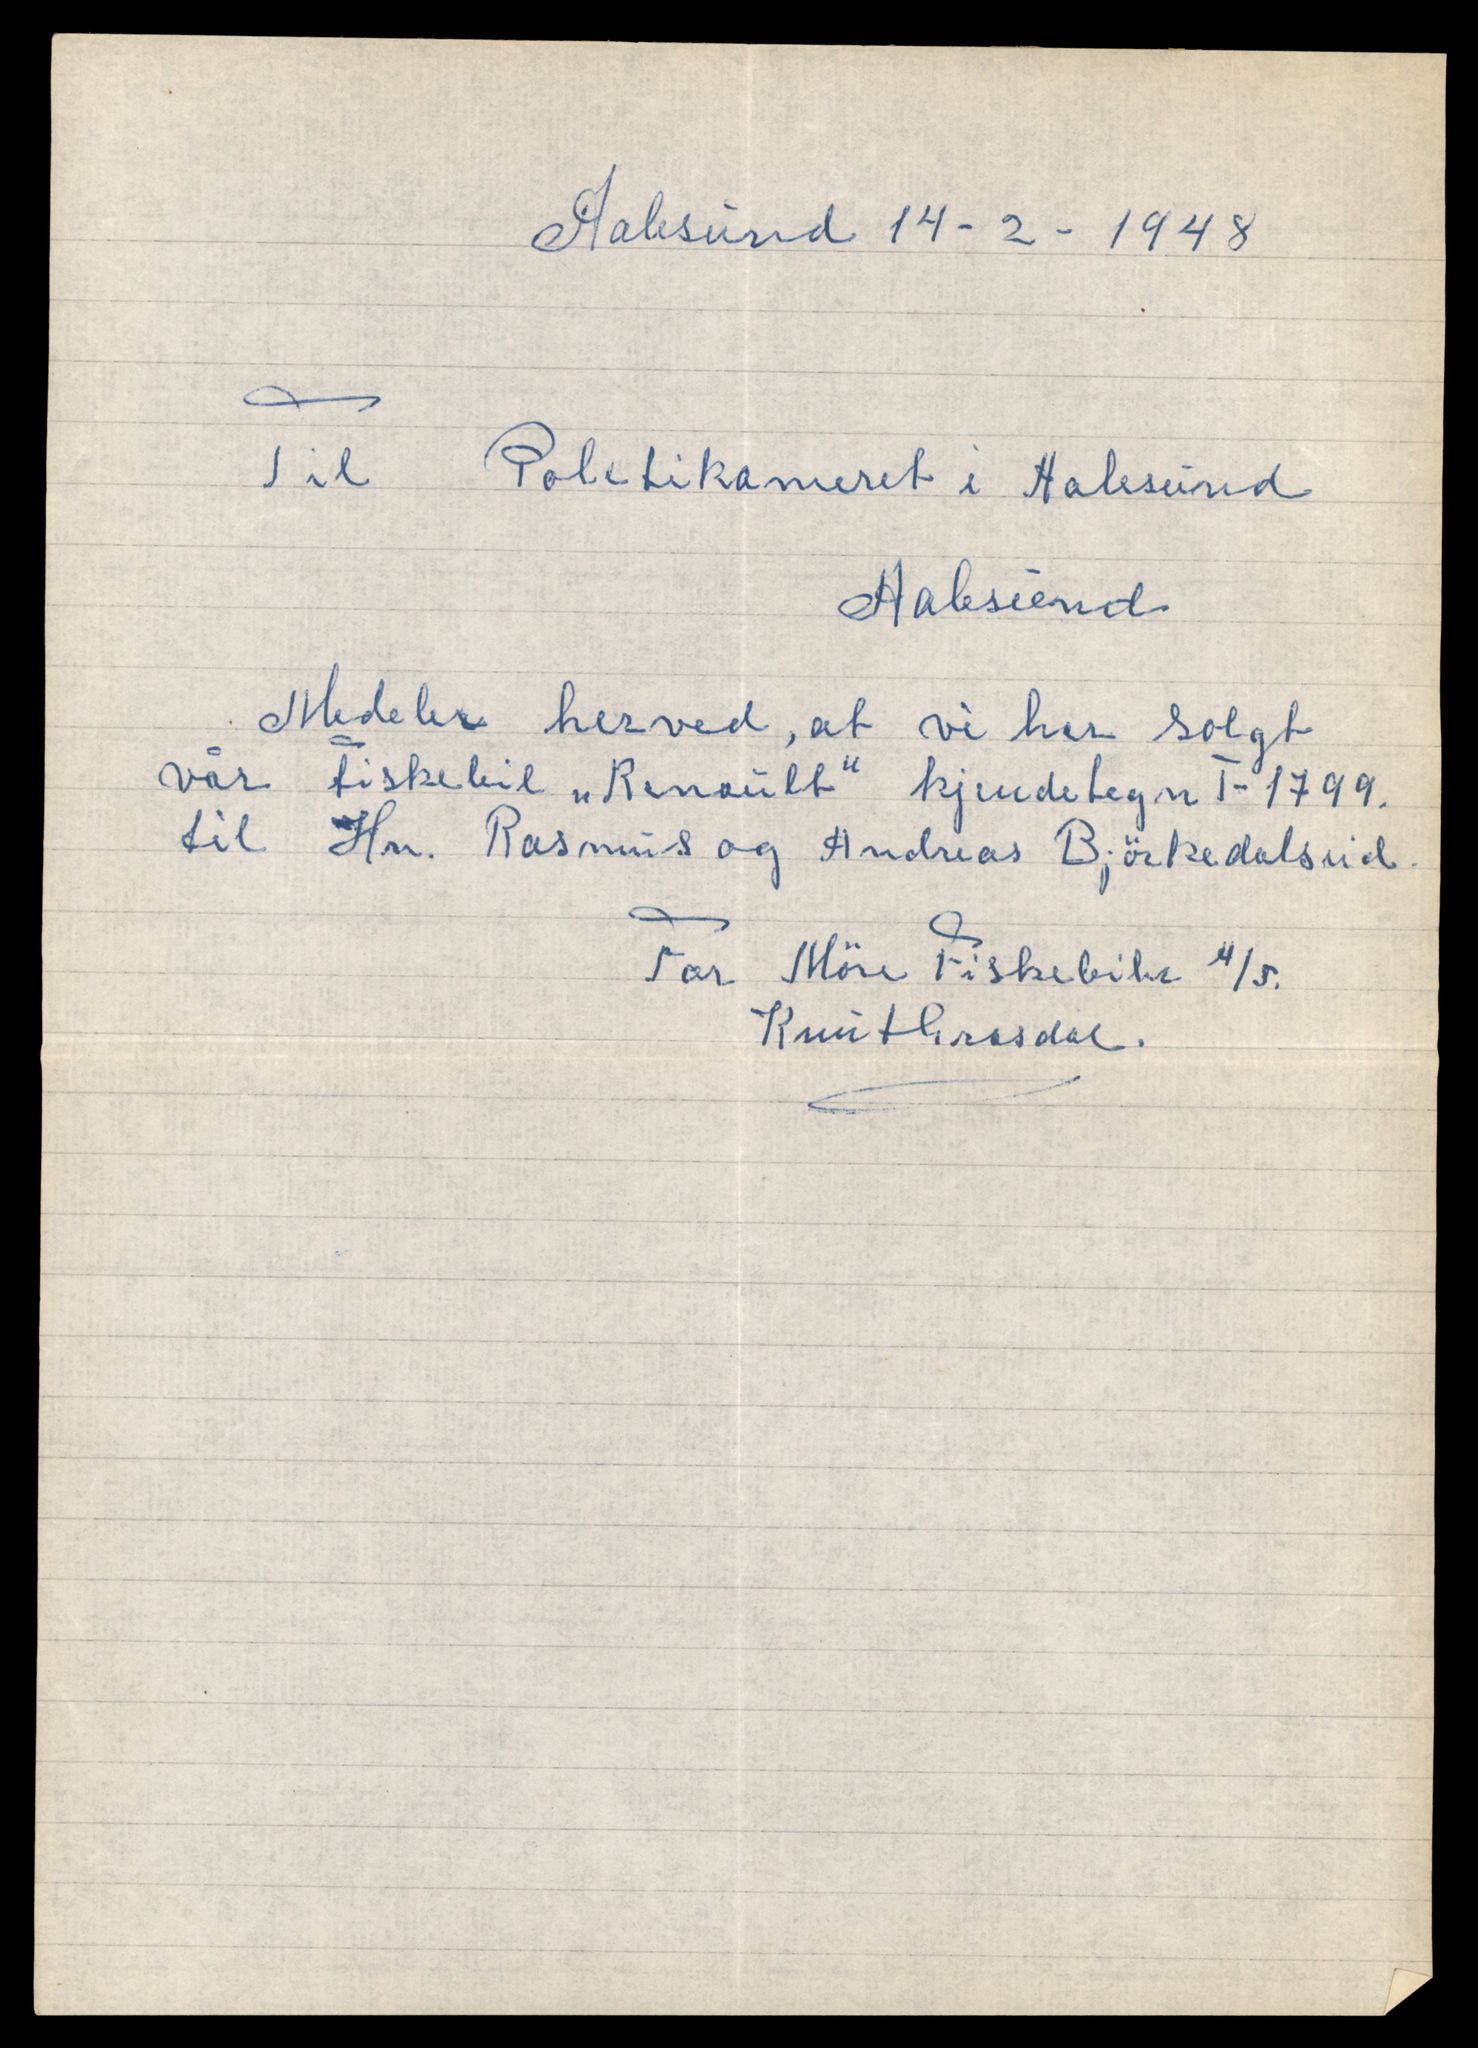 Aalesund 14-2-1948
Til Politikameret i Aalesund
Aalesund
Medeler herved, at vi har solgt
vår Fiskebil „Renault" kjendetegn T-1799.
til Hn. Rasmus og Andreas Björkedalseid.
For Möre Fiskebiler A/S.
Knut Grasdal.